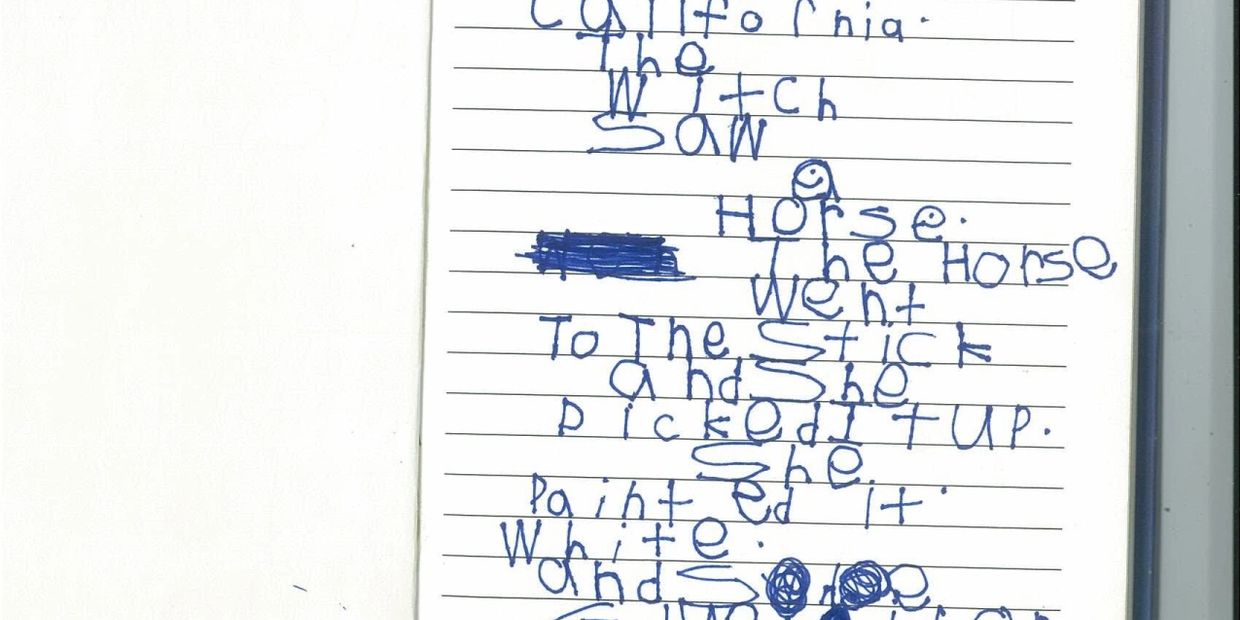 California.
The
Witch
SaW
Horse.
The Horse
Went
To The Stick
and She
Picked It UP.
She
Painted it.
White.
and